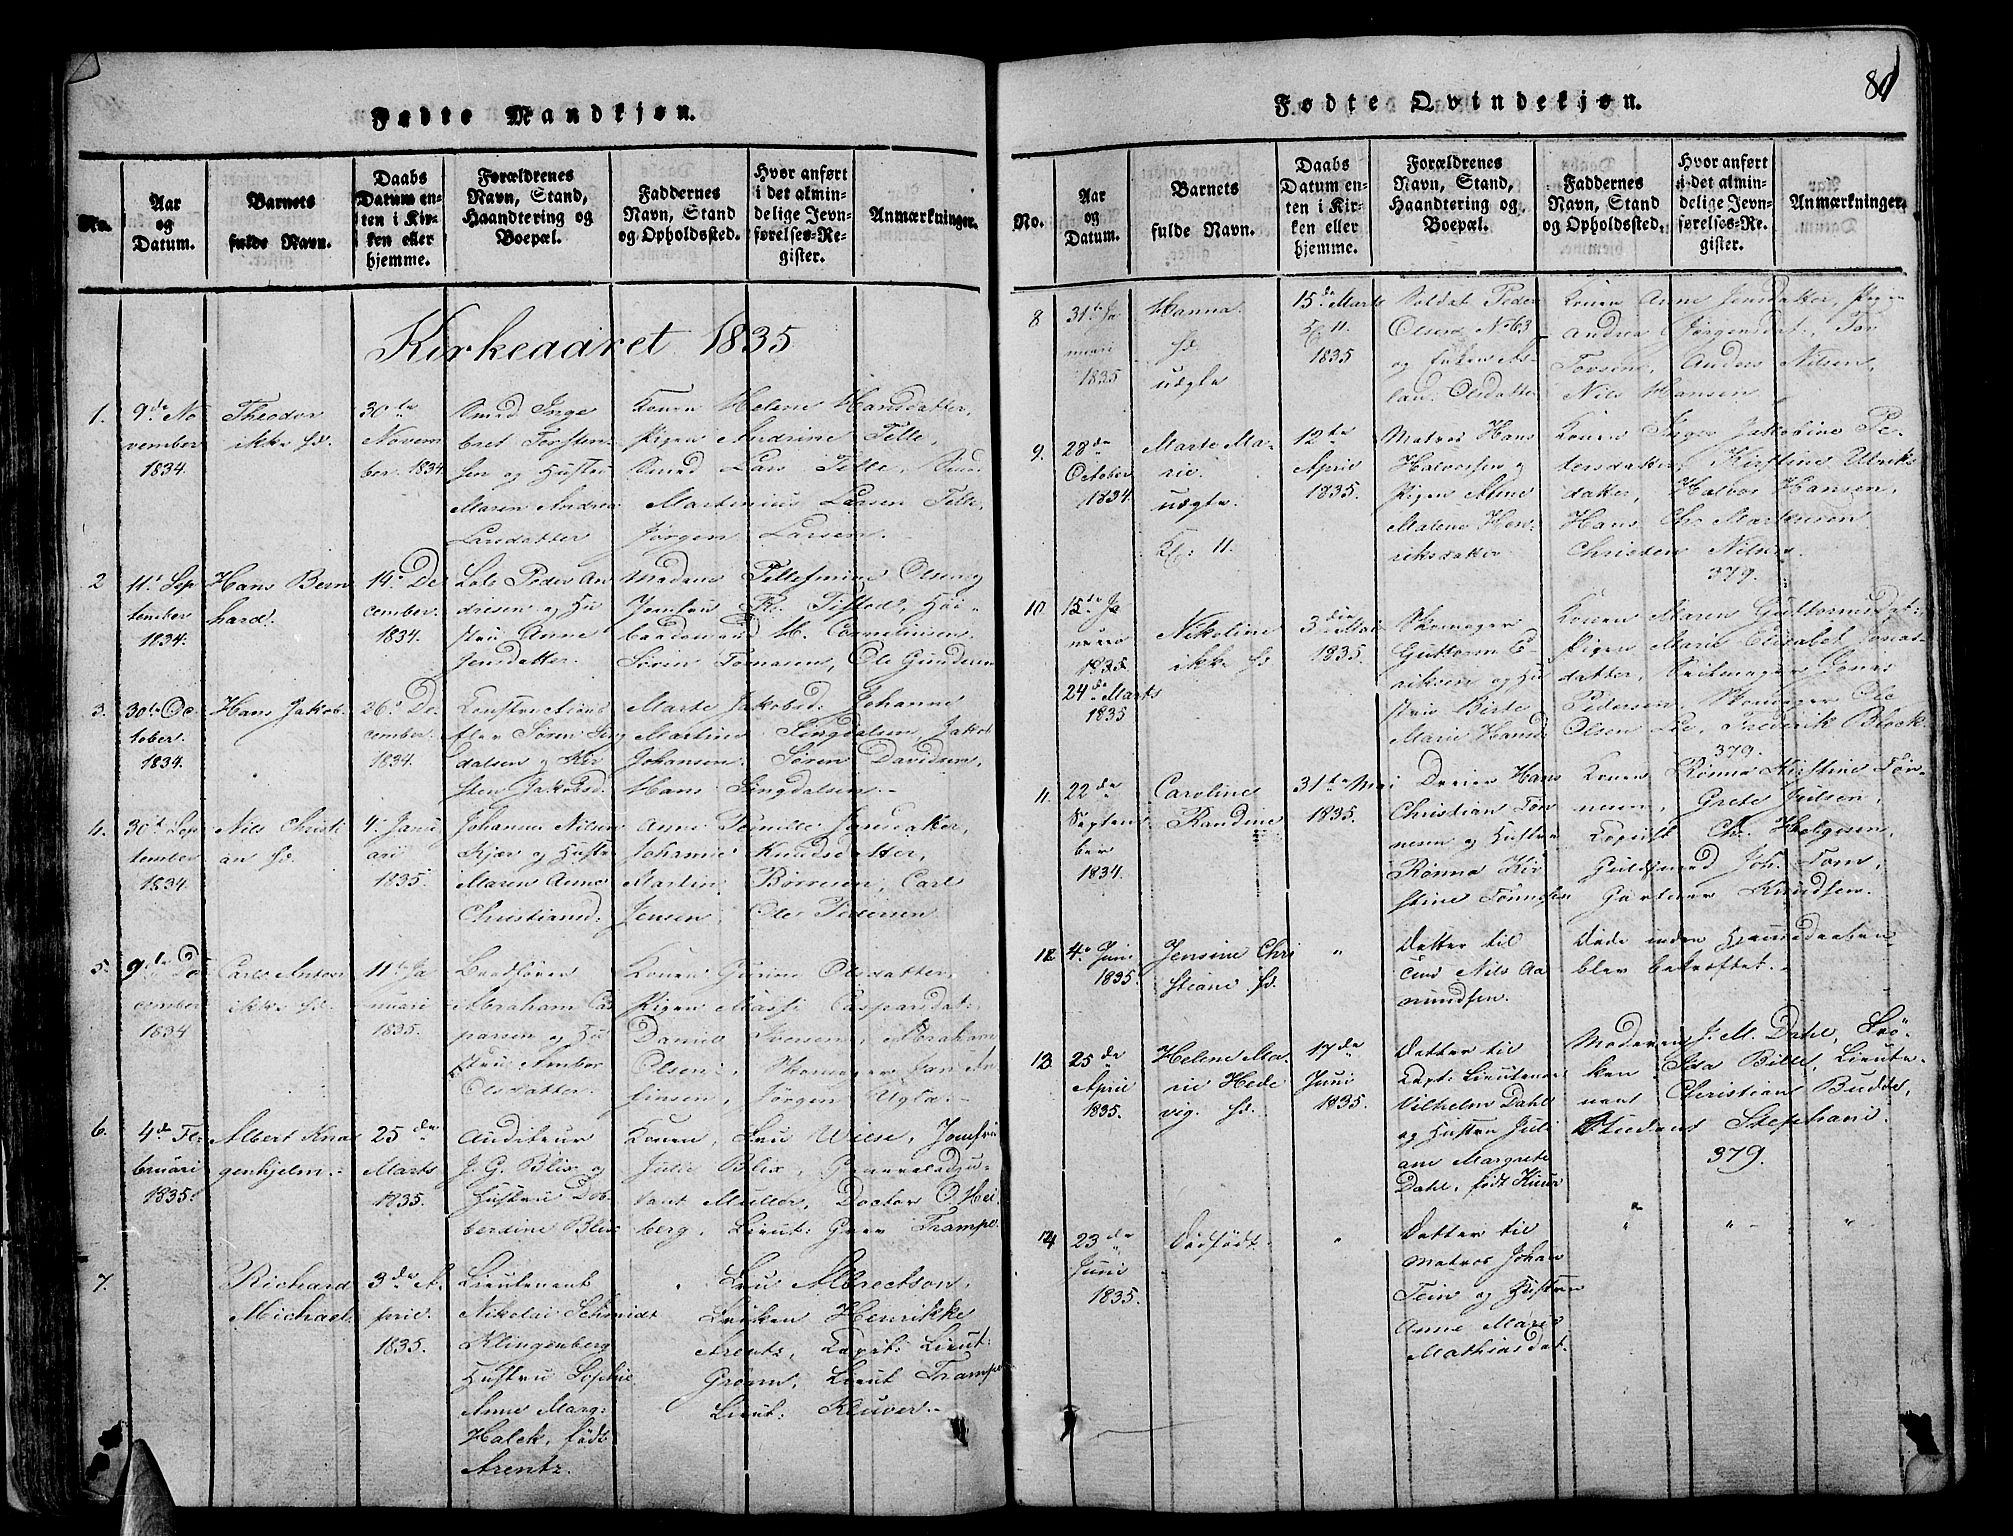 81
Fødte Mandkjøn.
No.
Aar og Datum.
Barnets fulde Navn.
Daabs Datum enten i Kirken eller hjemme.
Forældrenes Navn, Stand, Haandtering og Boepæl.
Faddernes Navn, Stand og Opholdssted.
Hvor anført i det almindelige Jevnførelses-Register.
Anmærkninger.
Kirkeaaret 1835
1.
9de November 1834
Theodor
ikke
30te November 1834
Smed Inge
bret Torsten
sen og Hustru
Maren Andrea
Larsdatter
Konen Helene Hansdatter,
Pigen Andrine Telle,
Smed Lars Telle,
Martinius Larsen Telle,
Jørgen Larsen.
2
11t September 1834
Hans Bernhard.
14de December 1834.
Lots Peder An
dresen og Hu
stru Anne
Jensdatter.
Madme Tellefsine Olsen og
Jomfru Tisted,
M. Cornelinsen
Sören Tomasen, Ole Gundersen
3.
30te October 1834
Hans Jakob.
26d December 1834.
Constructions
Sören Sing
dalsen og Kir
sten Jakobsd.
Marte Jakobsd. Johanne
Martine Singdalsen, Jakob
Johansen. Sören Davidsen,
Hans Singdalsen.
4.
30te September 1834
Nils Christian
4 Januari 1835.
Johannes Nilsen
Kjær og Hustru
Maren Anne
Christiansd:
Anne Pernille
Johanne Knudsdatter,
Martin Börresen, Carl
Jensen, Ole Pedersen
5.
9de December 1834
Carl Anton
ikke
11te Januari 1835.
Abraham Cas
parsen og Hu
stru
Olsdatter
Konen Gurine Olsdatter,
Pigen Massi Caspersdat:
Daniel Svensen, Abraham
Olsen, Skomager
finsen, Jørgen Uglæ.
6.
4de Februari 1835.
Albert Knagenhjelm.
25de Marts 1835.
Auditeur
J. G. Blix og
Hustru Dob
berdine Blix
Konen, Fru Wiese, Jomfru
Julie Blix,
Müller, Doctor O. Hei
berg, Lieut: Grev Trampe
7.
Richard Michael
3de April 1835.
Lieutenant
Nikolai Schmidt
Klingenberg
Hustru Sophie
Anne Marg:
Halck, födt
Arentz.
Fru Albrectson,
Fröken Henrikke
Arentz, Capit: Lieut:
Grönn, Lieut Trampe
Lieut: Klüwer.
Fødte Qvindekjøn.
No.
Aar og Datum.
Barnets fulde Navn.
Daabs Datum enten i Kirken eller hjemme.
Forældrenes Navn, Stand, Haandtering og Boepæl.
Faddernes Navn, Stand og Opholdssted.
Hvor anført i det almindelige Jevnførelses-Register.
Anmærkninger.
8
31te Januari 1835
Hanna.
uægte
15de Marts
1835
Soldat Peder
Olsen No 63
Olsdatter
Konen Anne Jensdatter, Pigen
Andrea Jørgensdat:, Tor
Torsen, Anders Nilsen,
Nils Hansen
9.
28de October 1834.
Marte Marie.
uægte.
Kl: 11.
12te April 1835.
Matros Hans
Halvorsen og
Pigen Anne
Malene Hen
riksdatter
Konen Inger Jakobine Pe
dersdatter, Kirstine Ulriks
datter, Halvor Hansen,
Hans Chr Mortensen
Christen Nilsen.
379.
10.
15de Januari 1835
24de Marts 1835
Nikoline
ikke
3die Mai 1835.
Skomager
Guttorm E
riksen og Hu
stru Birte
Marie Hansd
Konen Maren Guttormsdat:
Pigen Marie Elisabet Jonas
datter, Seilmager Jonas
Pedersen, Skomager Ole
Olsen Lie, Frederik Block
379.
11.
22de September 1834.
Caroline Randine
31te Mai 1835.
Dreier Hans
Christian Tön
nesen og Hustru
Rönna Kir
stine Tönnesen
Konen Rönna Kirstine Tön
nesen, Grete Juelsen,
Copiist Chr. Helgesen,
Guldsmed Joh. Tom,
Gartner Knudsen.
12
4de Juni 1835.
Jensine Christiane
"
Datter til
Nils Aa
mundsen.
Döde inden Hjemmedaaben
blev bekræftet.
13.
25de April 1835.
Helene Marie Hedevig.
17de Juni 1835.
Datter til
Capt: Lieutenant
Vilhelm Dahl
og Hustru Juli
ane Margrete
Dahl, født
Madamen J. M. Dahl, Frö
ken Ida Bille, Lieute
nant Christian Budde,
Student Stephani.
379.
14
23de Juni 1835.
Dödfödt.
"
Datter til
Matros Johan
Tein og Hustru
Anne Marie
Mathiasdat.
"
"
"